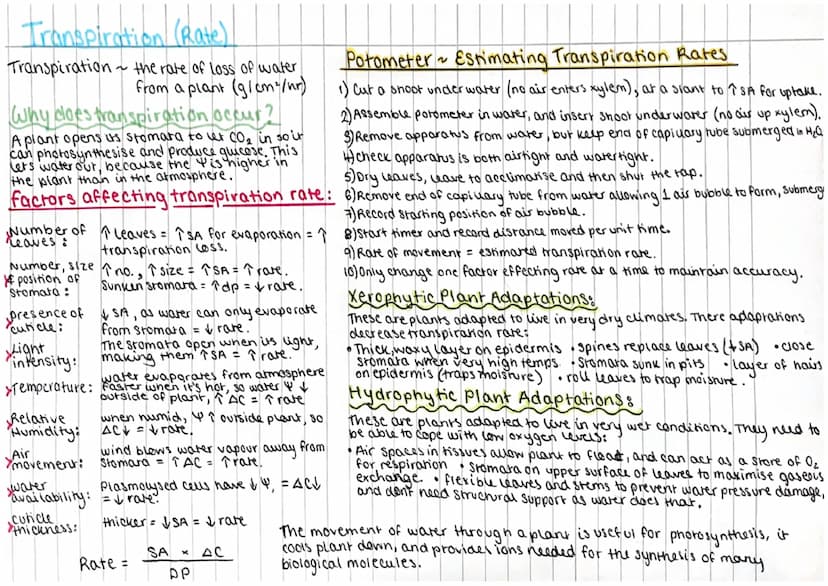 Transpiration (Rate)
Transpiration ~ the rate of loss of water
from a plant (g/cm²/hr)
Why does transpiration occur?
A plant opens its stomata to let CO₂ in so it
can photosynthesise and produce glucose. This
lets water out, because the Ψ is higher in
the plant than in the atmosphere.
Factors affecting transpiration rate:
Number of leaves: ↑ leaves = ↑SA for evaporation = ↑
transpiration loss.
Number, size & position of stomata: ↑ no., ↑ size = ↑SA = ↑ rate.
Sunken stomata = ↑dp = ↓ rate.
presence of cuticle: ↓ SA, as water can only evaporate
from stomata = ↓ rate.
Light intensity: The stomata open when its light,
making them ↑SA = ↑ rate.
Temperature: water evaporates from atmosphere
faster when it's hot, so water Ψ ↓
outside of plant, ↑ ΔC = ↑ rate
Relative Humidity: when humid, Ψ ↑ outside plant, so
ΔC↓ = ↓ rate.
Air movement: wind blows water vapour away from
stomata = ↑ ΔC = ↑ rate.
water availability: Plasmolysed cells have ↓ Ψ, = ΔC↓
= ↓ rate.
cuticle thickness: thicker = ↓SA = ↓ rate
Rate = SA × ΔC
DP
Potometer ~ Estimating Transpiration Rates
1) Cut a shoot under water (no air enters xylem), at a slant to ↑ SA for uptake.
2) Assemble potometer in water, and insert shoot underwater (no air up xylem).
3) Remove apparatus from water, but keep end of capillary tube submerged in H₂O
4) check apparatus is both airtight and watertight.
5) Dry leaves, leave to acclimatise and then shut the tap.
6) Remove end of capillary tube from water allowing 1 air bubble to form, submerg
7) Record starting position of air bubble.
8) Start timer and record distance moved per unit time.
9) Rate of movement = estimated transpiration rate.
10) Only change one factor effecting rate at a time to maintain accuracy.
Xerophytic Plant Adaptations:
These are plants adapted to live in very dry climates. There adaptations
decrease transpiration rate:
• Thick, waxy layer on epidermis • spines replace leaves (↓SA) • close
stomata when very high temps • Stomata sunk in pits • layer of hairs
on epidermis (traps moisture) • roll leaves to trap moisture.
Hydrophytic Plant Adaptations:
These are plants adapted to live in very wet conditions. They need to
be able to cope with low oxygen levels:
• Air spaces in tissues allow plant to float, and can act as a store of O₂
for respiration • stomata on upper surface of leaves to maximise gaseous
exchange. • flexible leaves and stems to prevent water pressure damage,
and dont need structural support as water does that.
The movement of water through a plant is useful for photosynthesis, it
cools plant down, and provides ions needed for the synthesis of many
biological molecules.